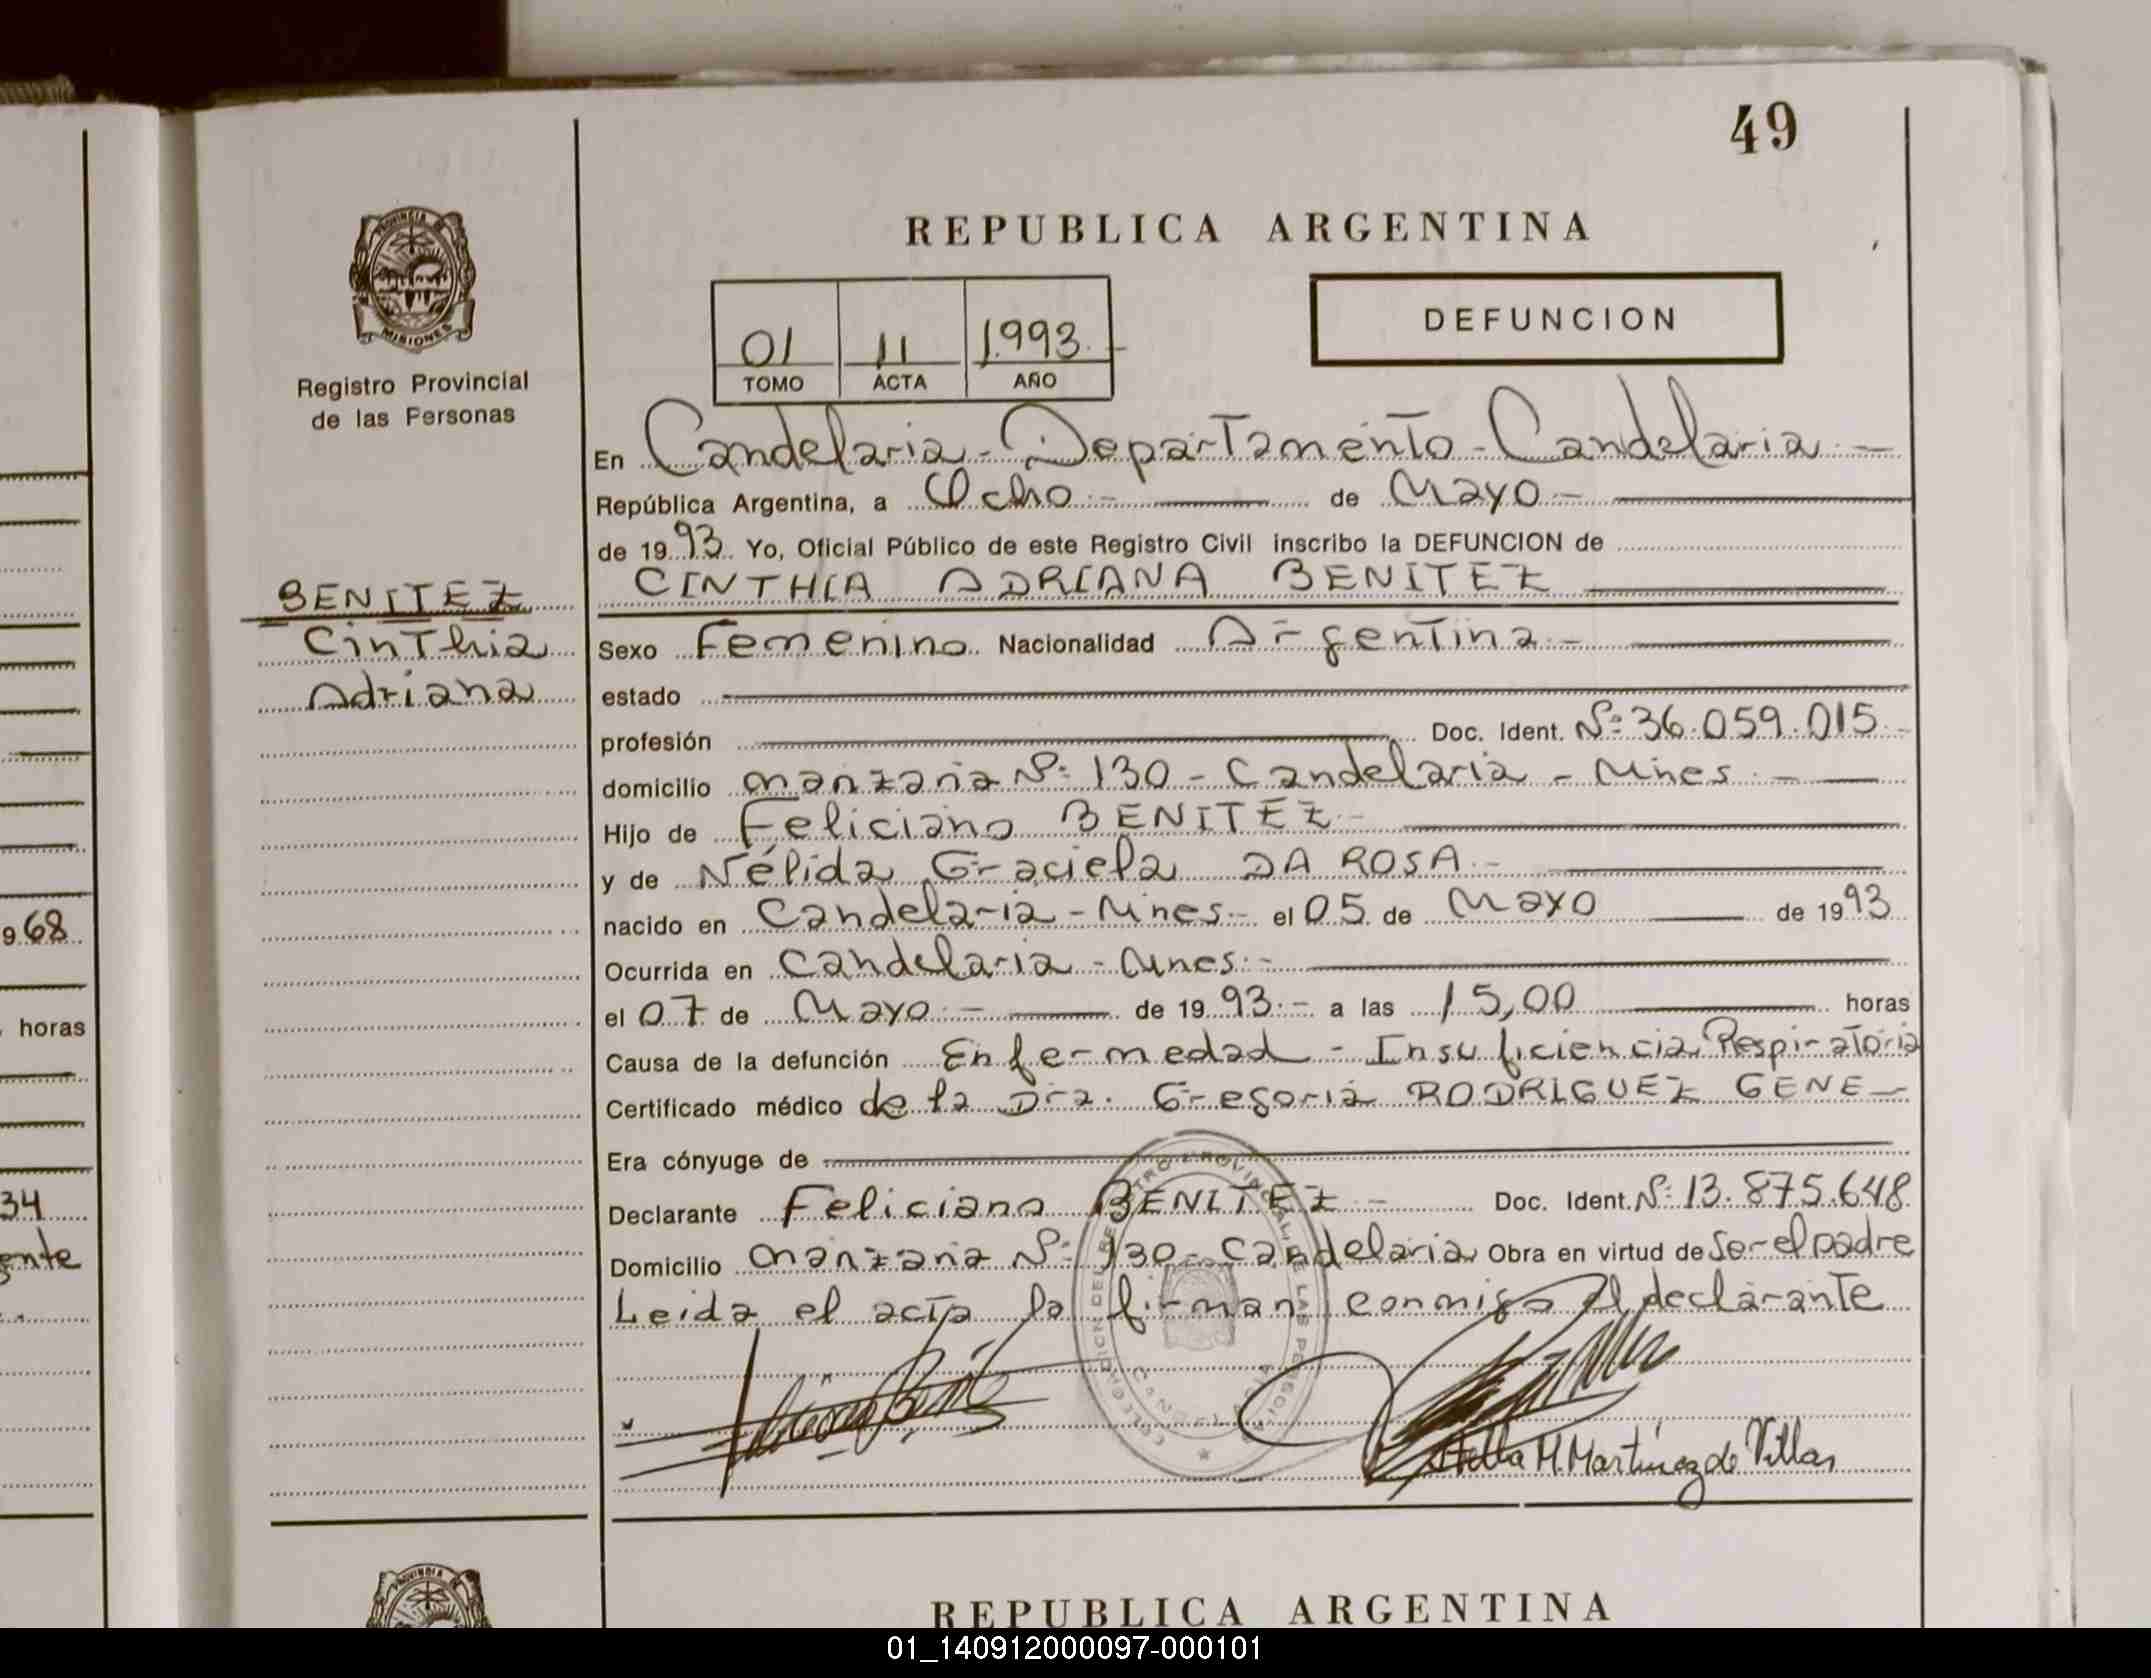 49
REPUBLICA ARGENTINA
PROVINCIA DE
MISIONES
Registro Provincial
de las Personas
01 11 1.993.-
TOMO ACTA AÑO
DEFUNCION
En Candelaria - Departamento - Candelaria -
República Argentina, a Ocho.- de Mayo.-
de 1993. Yo, Oficial Público de este Registro Civil inscribo la DEFUNCION de
CINTHIA ADRIANA BENITEZ
BENITEZ
Cinthia
Adriana
Sexo Femenino Nacionalidad Argentina.-
estado
profesión Doc. Ident. Nº 36.059.015.-
domicilio manzana Nº 130 - Candelaria - Mnes.-
Hijo de Feliciano BENITEZ.-
y de Nélida Graciela DA ROSA.-
nacido en Candelaria - Mnes.- el 05 de Mayo de 1993
Ocurrida en Candelaria - Mnes.-
el 07 de Mayo.- de 1993.- a las 15,00 horas
Causa de la defunción Enfermedad - Insuficiencia Respiratoria
Certificado médico de la Dra. Gregoria RODRIGUEZ GENE-
Era cónyuge de
Declarante Feliciano BENITEZ.- Doc. Ident. Nº 13.875.648
Domicilio manzana Nº 130 - Candelaria Obra en virtud de Ser el padre
Leida el acta la firman conmigo el declarante
Stella M. Martínez de Villas
968
horas
34
ente
PROVINCIA DE
REPUBLICA ARGENTINA
01_140912000097-000101